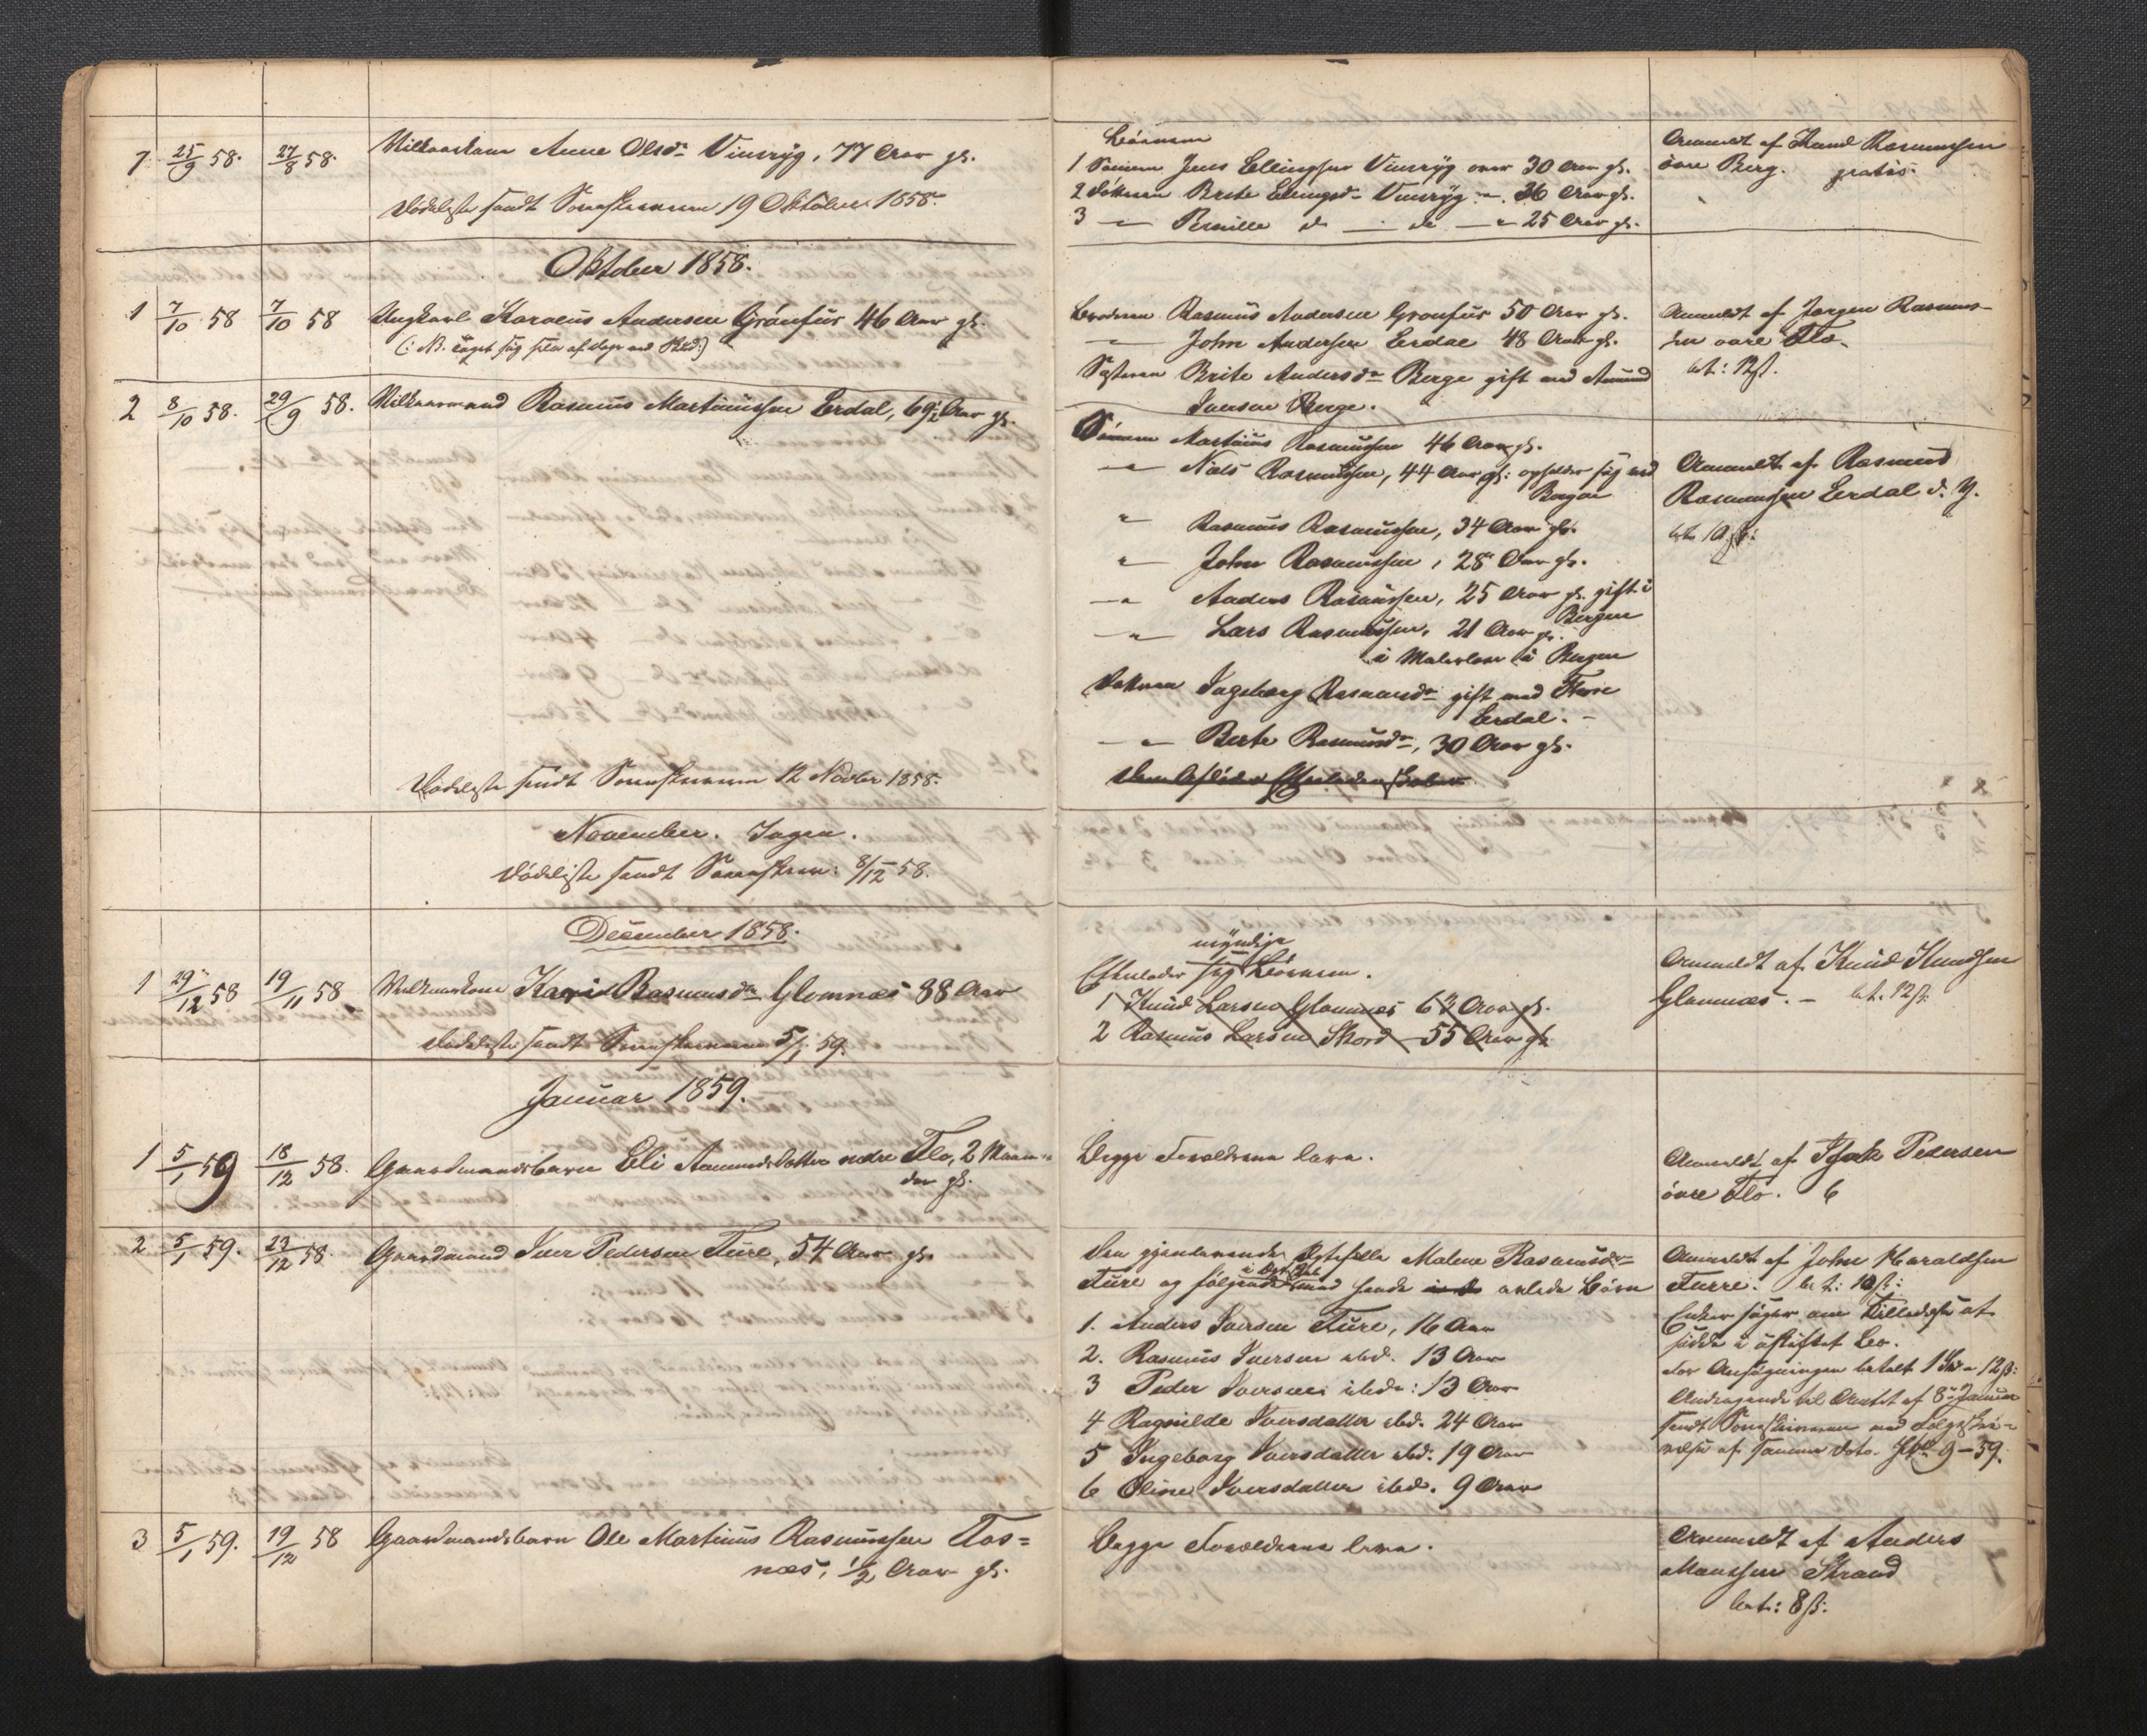 7. 25/9 58. 27/8 58. Vilkaarskone Anne Olsdr Vinsryg, 77 Aar gl.
Dødsliste sendt Sorenskriveren 19 Oktober 1858.
Børnene
1 Sønnen Jens Ellingsen Vinsryg over 30 Aar gl.
2 Døtteren Brite Ellingsdr Vinsryg - 36 Aar gl.
3 — Pernille d — do — 25 Aar gl.
Anmeldt af Knud Rasmussen
øvre Berg. gratis.
Oktober 1858.
1 7/10 58 7/10 58 Ungkarl Karolus Andersen Grønfur 46 Aar gl.
(: NB. taget sig selv af dage ved :)
Broderen Rasmus Andersen Gronfur 50 Aar gl.
— John Andersen Erdal 48 Aar gl.
Søsteren Brite Andersdr Berge gift med Amund
Iversen Berge.
Anmeldt af Jørgen Rasmus-
sen øvre Flo.
bet: 12ß.
2 8/10 58. 29/9 58. Vilkaarsmand Rasmus Martinussen Erdal, 69½ Aar gl.
Sønnen Martinus Rasmussen 46 Aar gl.
— Niels Rasmussen, 44 Aar gl: opholder sig ved
Bergen
" Rasmus Rasmussen, 34 Aar gl.
" John Rasmussen, 28 Aar gl.
— " Anders Rasmussen, 25 Aar gl. gift i
Bergen
— " Lars Rasmussen, 21 Aar gl.
i Malerlære i Bergen
Datteren Ingeborg Rasmusdr gift med
Erdal. -
— " Berte Rasmusdr, 30 Aar gl.
Anmeldt af Rasmus
Rasmussen Erdal d. Y.
Dødsliste sendt Sorenskriveren 12 Novber 1858.
November. Ingen.
Dødsliste sendt Sorenskriv: 8/12 58.
December 1858.
1 29/12 58 19/11 58 Vilkaarskone Kari Rasmusdr Glomnæs 88 Aar
Dødsliste sendt Sorenskriveren 5/1 59.
myndige
Efterlader sig Børnene.
1 Knud Larsen Glomnæs 63 Aar gl.
2 Rasmus Larsen Skord - 55 Aar gl.
Anmeldt af Knud Knudsen
Glomnæs. - bet. 12ß.
Januar 1859.
1 5/1 59 18/12 58. Gaardmandsbarn Eli Aamundsdatter nedre Flo, 2 Maane-
der gl.
Begge Forældrene leve.
Anmeldt af Isak Pedersen
øvre Flo. 6
2 5/1 59. 23/12 58. Gaardmand Iver Pedersen Ture, 54 Aar gl.
Den gjenlevende Ægtefælle Malene Rasmusdr
Ture og følgende i Ægteskab med hende avlede Børn
1. Anders Iversen Ture, 16 Aar
2. Rasmus Iversen ibid. 13 Aar
3 Peder Iversen ibid: 13 Aar
4 Ragnilde Iversdatter ibid. 24 Aar
5 Ingeborg Iversdatter ibid. 19 Aar
6 Oline Iversdatter ibid. 9 Aar
Anmeldt af John Haraldsen
Turre. bet: 10ß:
Enken søger om Tilladelse at
sidde i uskiftet Bo.
For Ansøgningen betalt 1 12ß:
Andragende til Amtet af 8de Januar
sendt Sorenskriveren med Følgeskri-
velse af samme Dato. 9-59.
3 5/1 59. 19/12 58 Gaardmandsbarn Ole Martinus Rasmussen Tos=
næs, ½ Aar gl.
Begge Forældrene leve.
Anmeldt af Anders
Monssen Strand
bet: 8ß: